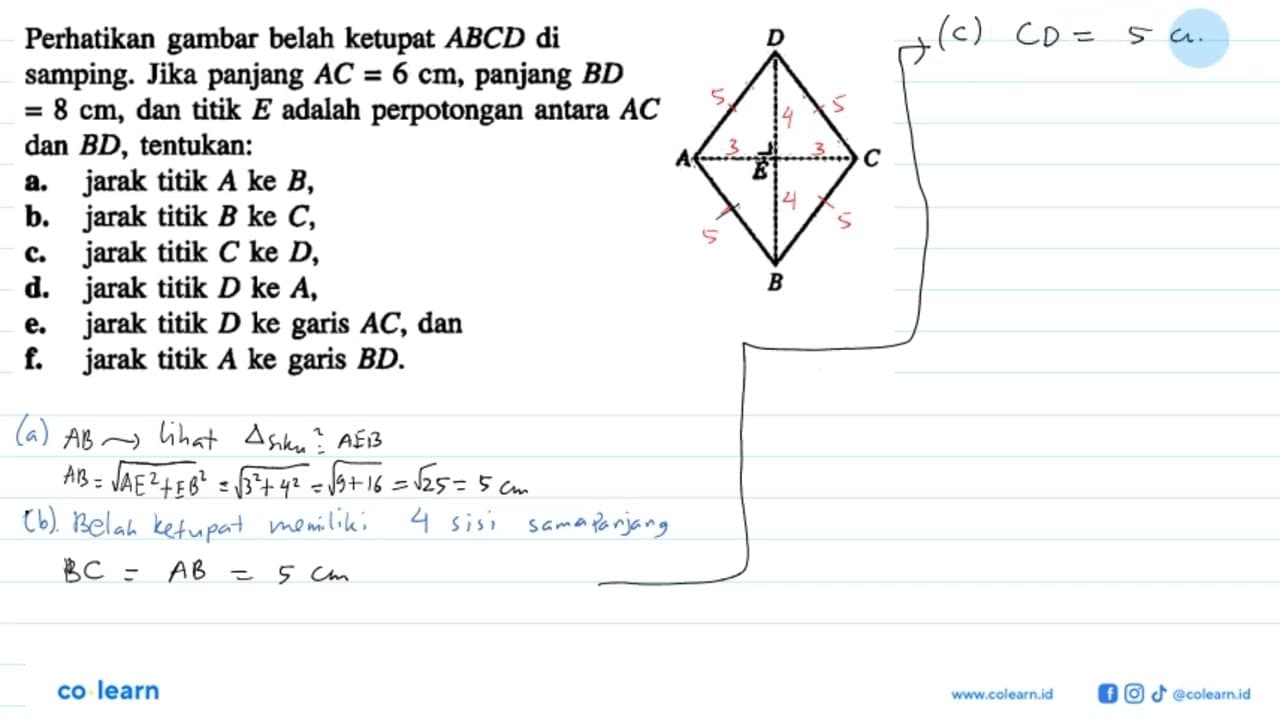 Perhatikan gambar belah ketupat ABCD di
samping. Jika panjang AC = 6 cm, panjang BD
= 8 cm, dan titik E adalah perpotongan antara AC
dan BD, tentukan:
a. jarak titik A ke B,
b. jarak titik B ke C,
c. jarak titik C ke D,
d. jarak titik D ke A,
e. jarak titik D ke garis AC, dan
f. jarak titik A ke garis BD.
D
5 4 5
A 3 E 3 C
5 4 5
B
(a) AB → lihat Δ siku²: AEB
AB = √AE²+EB² = √3²+4² = √9+16 = √25 = 5 cm
(b). Belah ketupat memiliki 4 sisi sama panjang
BC = AB = 5 cm
(c) CD = 5 c
co learn
www.colearn.id
@colearn.id